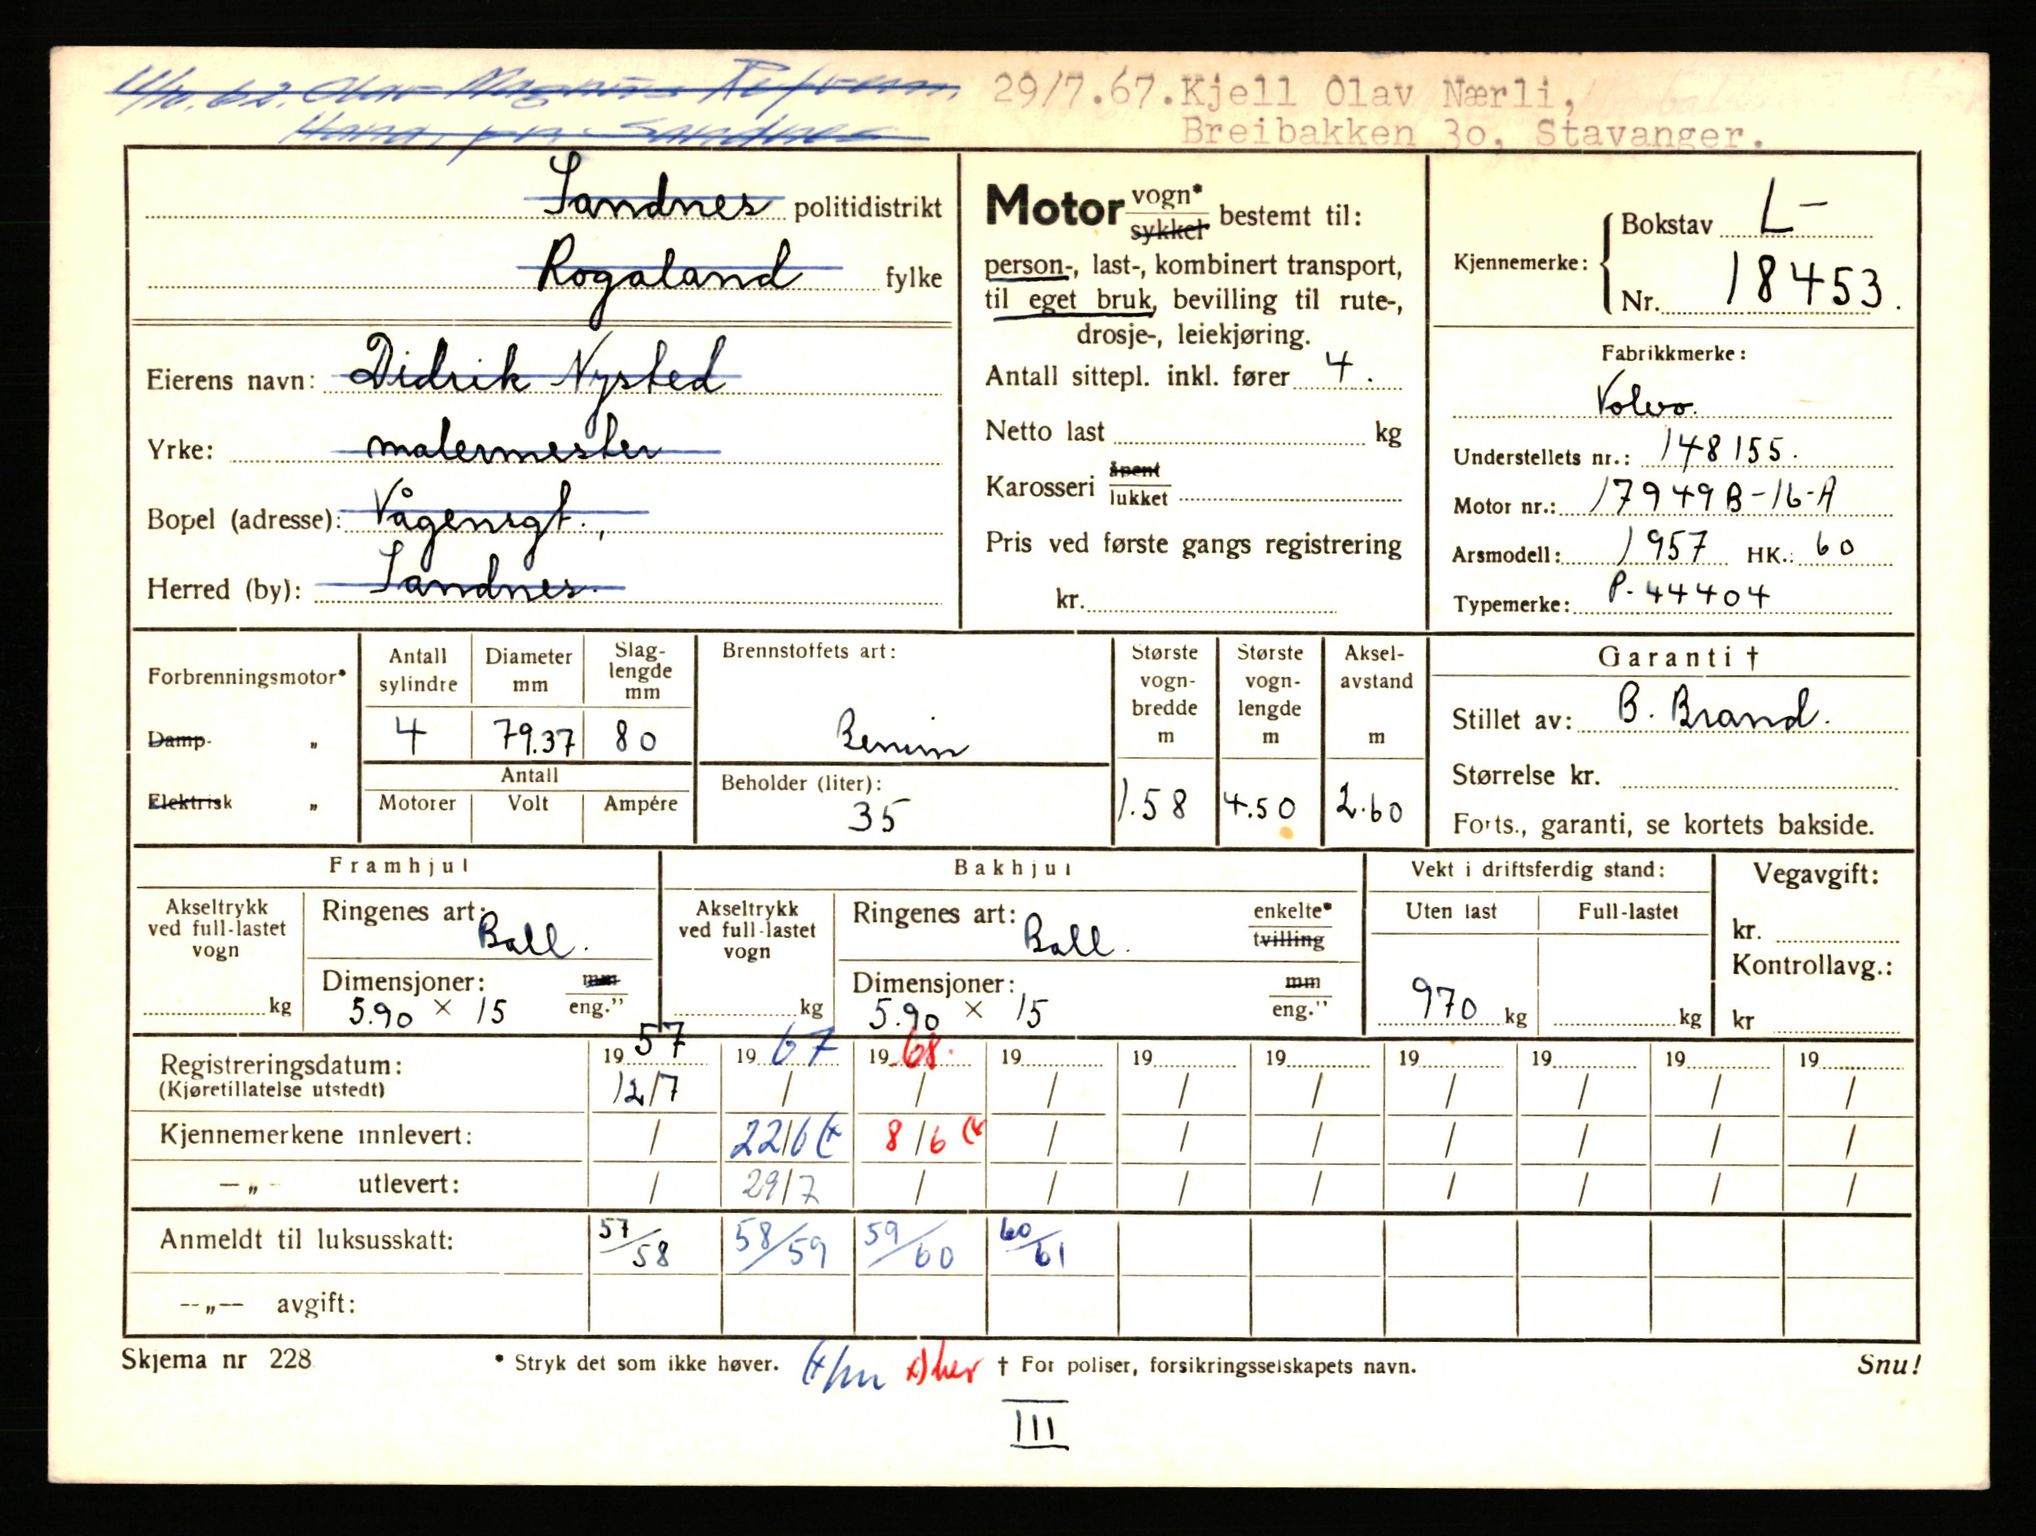 11/10.62. Olav Magnus Refvem, 29/7.67. Kjell Olav Nærli,
Hana, pr. Sandnes Breibakken 3o, Stavanger.
Sandnes politidistrikt
Rogaland fylke
Eierens navn: Didrik Nysted
Yrke: malermester
Bopel (adresse): Vågensgt.,
Herred (by): Sandnes.
Motor vogn* sykkel bestemt til:
person-, last-, kombinert transport,
til eget bruk, bevilling til rute-,
drosje-, leiekjøring.
Antall sittepl. inkl. fører 4.
Netto last kg
Karosseri åpent lukket
Pris ved første gangs registrering
kr.
Kjennemerke: Bokstav L-
Nr. 18453.
Fabrikkmerke:
Volvo.
Understellets nr.: 148155.
Motor nr.: 17949B-16-A
Årsmodell: 1957 HK.: 60
Typemerke: P-44404
Forbrenningsmotor*
Damp- „
Elektrisk „
Antall sylindre 4
Diameter mm 79.37
Slag-lengde mm 80
Antall
Motorer Volt Ampére
Brennstoffets art:
Bensin
Beholder (liter):
35
Største vogn-bredde m 1.58
Største vogn-lengde m 4.50
Aksel-avstand m 2.60
Garanti †
Stillet av: B. Brand.
Størrelse kr.
Forts., garanti, se kortets bakside.
Framhjul
Akseltrykk ved full-lastet vogn kg
Ringenes art: Ball.
Dimensjoner: mm eng.”
5.90 × 15
Bakhjul
Akseltrykk ved full-lastet vogn kg
Ringenes art: Ball. enkelte* tvilling
Dimensjoner: mm eng.”
5.90 × 15
Vekt i driftsferdig stand:
Uten last Full-lastet
970 kg kg
Vegavgift:
kr.
Kontrollavg.:
kr
Registreringsdatum: 1957 1967 1968. 19 19 19 19 19 19 19
(Kjøretillatelse utstedt) 12/7 / / / / / / / / /
Kjennemerkene innlevert: / 22/6 (x 8/6 (x / / / / / / /
—„— utlevert: / 29/7 / / / / / / / /
Anmeldt til luksusskatt: 57/58 58/59 59/60 60/61
—„— avgift:
Skjema nr 228 * Stryk det som ikke høver. x) her † For poliser, forsikringsselskapets navn. Snu!
III